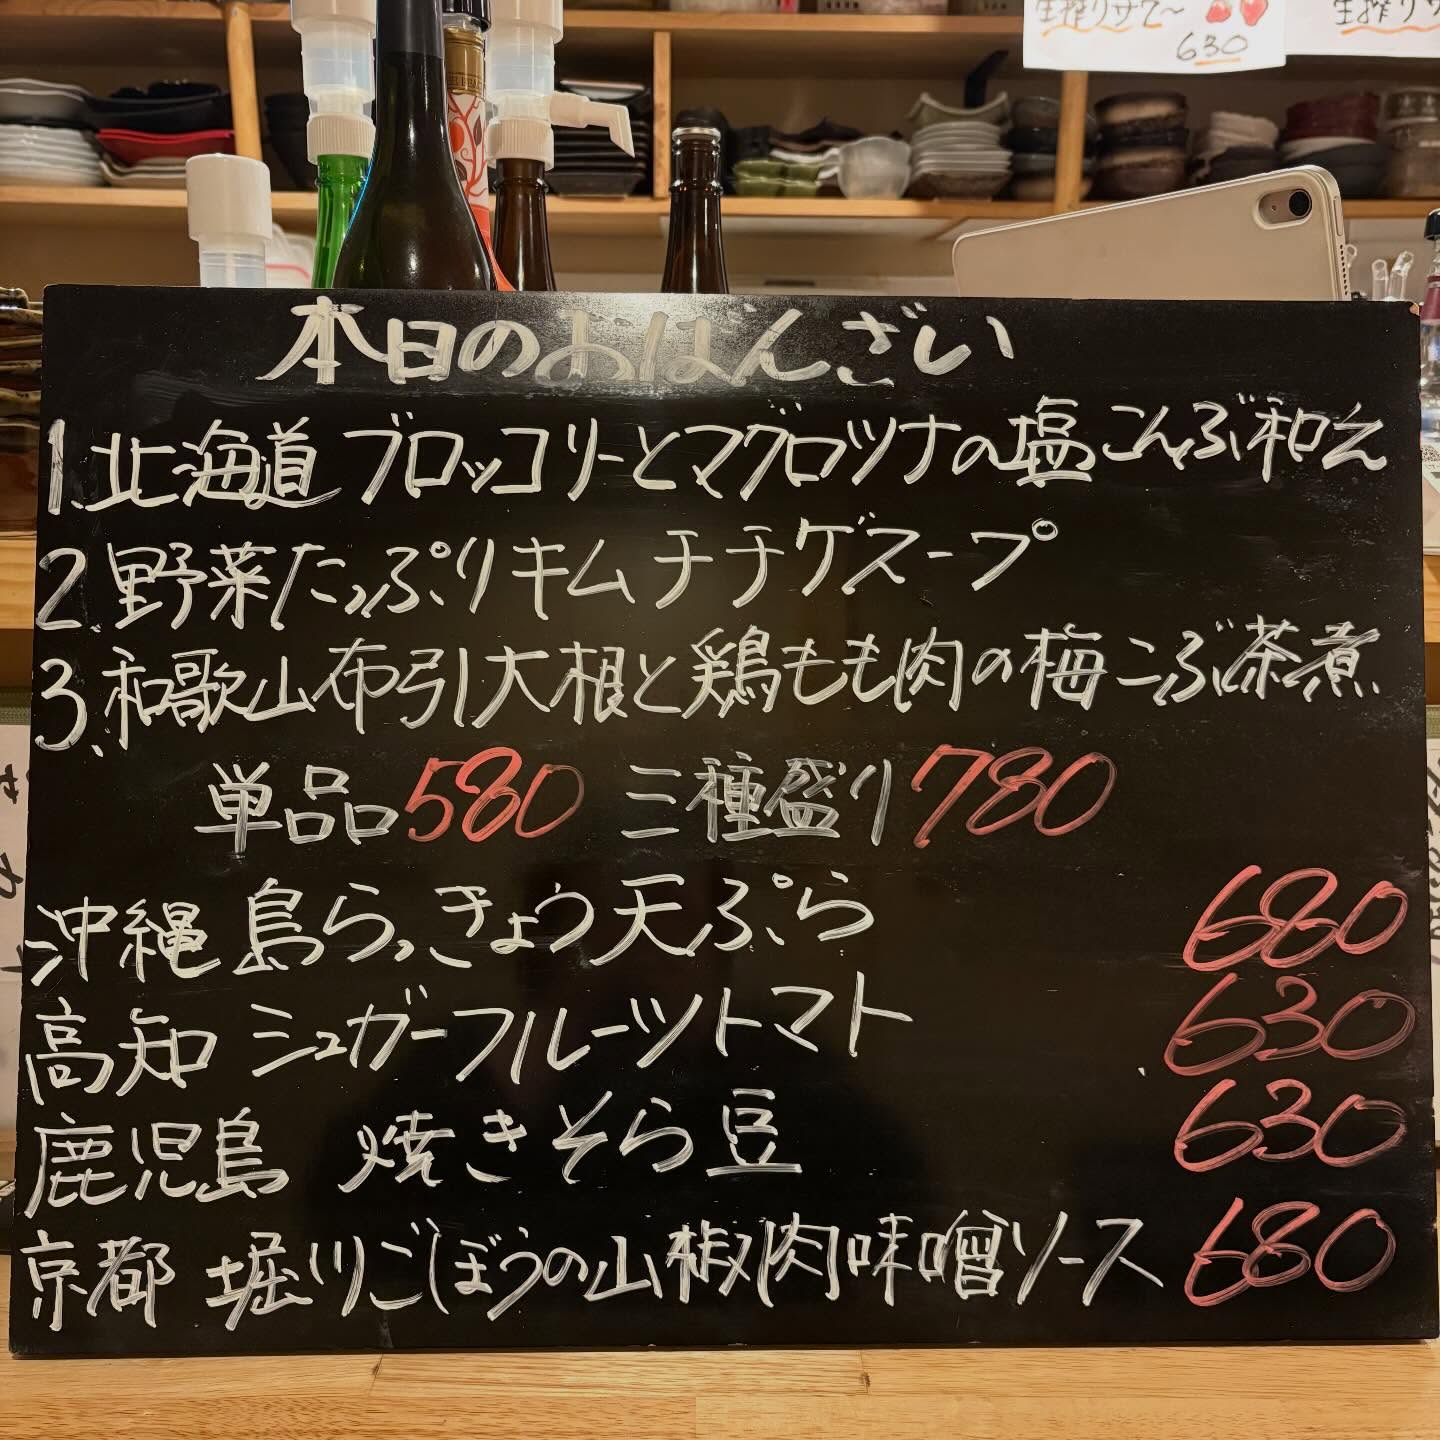 生搾りサワ〜
630
生搾りサ
本日のおばんざい
1.北海道 ブロッコリーとマグロツナの塩こんぶ和え
2.野菜たっぷりキムチチゲスープ
3.和歌山布引大根と鶏もも肉の梅こぶ茶煮
単品580 三種盛り780
沖縄 島らっきょう天ぷら 680
高知 シュガーフルーツトマト 630
鹿児島 焼きそら豆 630
京都 堀川ごぼうの山椒肉味噌ソース 680